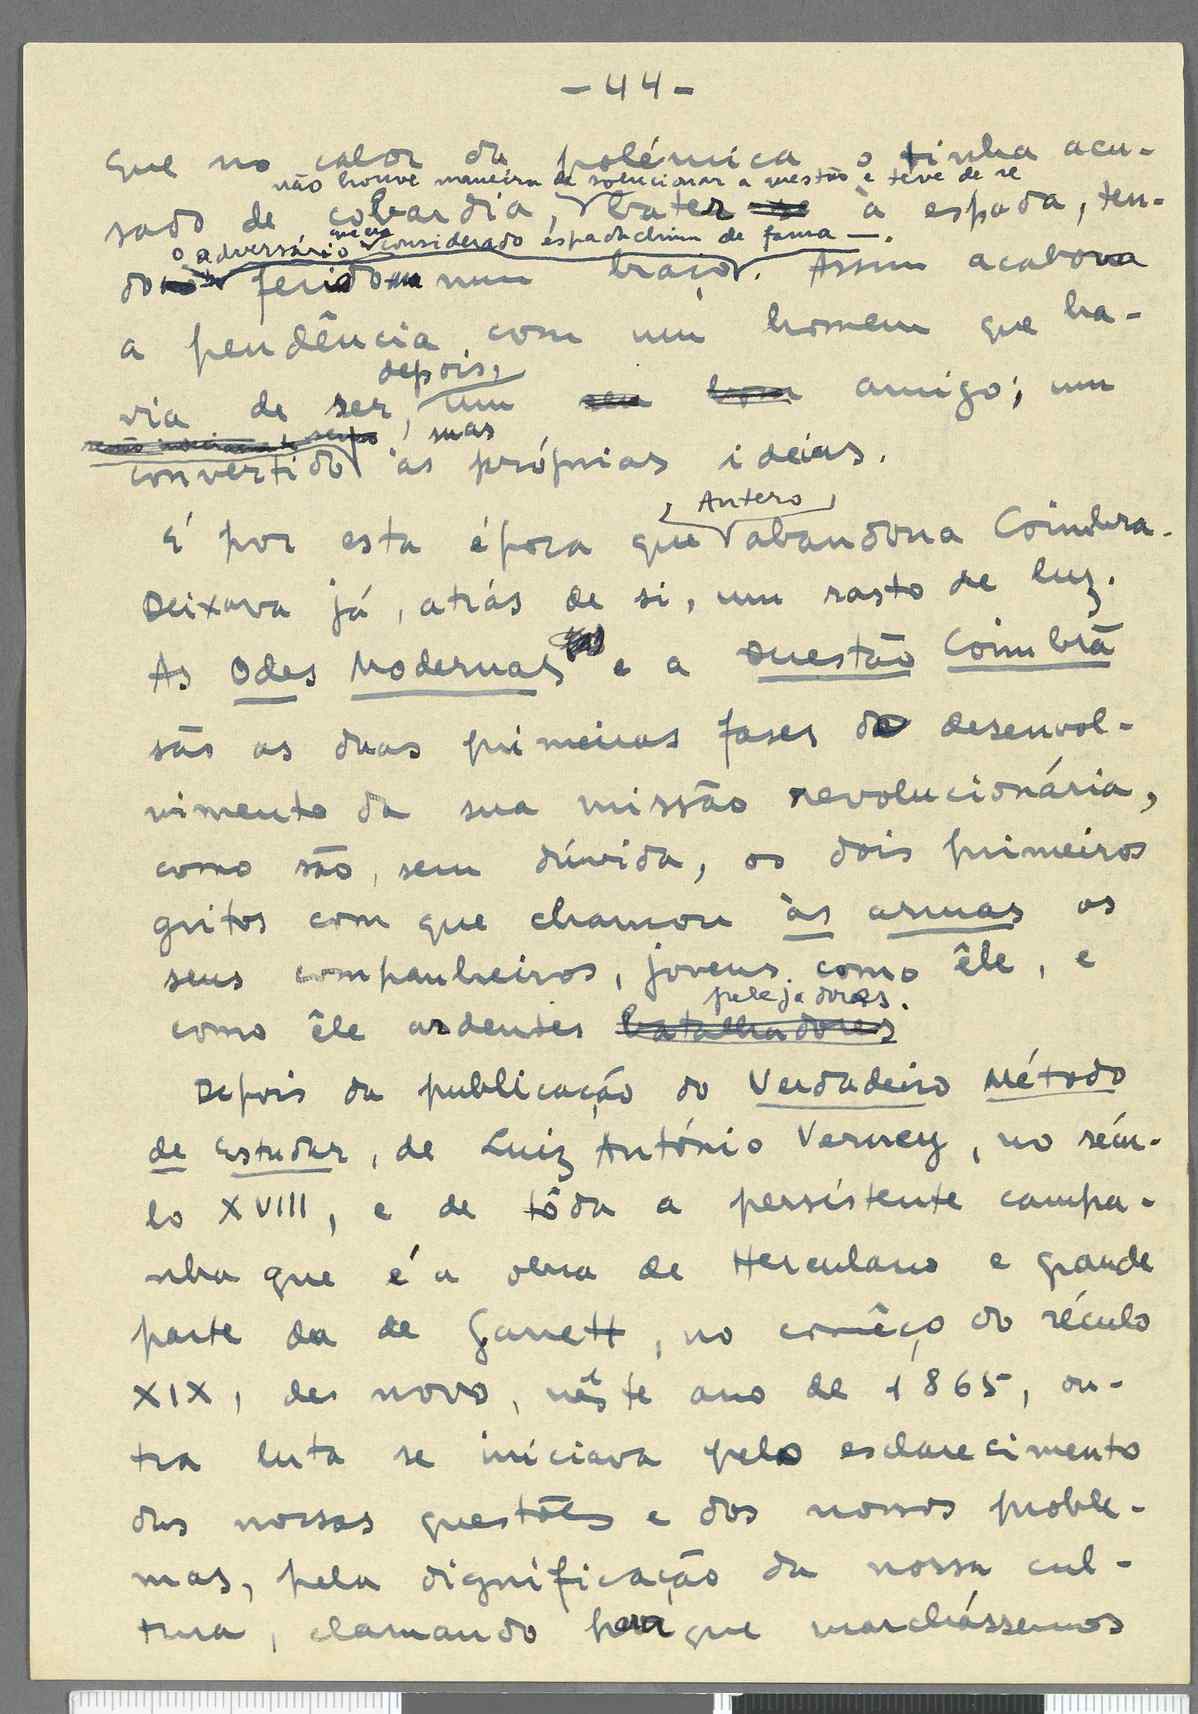 - 44 -
que no calor da polémica o tinha acu-
não houve maneira de solucionar a questão e teve de se
sado de cobardia, bater se à espada, ten-
o adversário que era considerado espadachim de fama —.
do ferido num braço. Assim acabava
a pendência com um homem que ha-
depois,
via de ser, um seu bom amigo; um
suas
convertido às próprias ideias.
Antero
É por esta época que abandona Coimbra.
Deixava já, atrás de si, um rasto de luz.
As Odes Modernas e a Questão Coimbrã
são as duas primeiras fases do desenvol-
vimento da sua missão revolucionária,
como são, sem dúvida, os dois primeiros
gritos com que chamou às armas os
seus companheiros, jovens como êle, e
pelejadores.
como êle ardentes batalhadores
Depois da publicação do Verdadeiro Método
de Estudar, de Luiz António Verney, no sécu-
lo XVIII, e de tôda a persistente campa-
nha que é a obra de Herculano e grande
parte da de Garrett, no comêço do século
XIX, de novo, nêste ano de 1865, ou-
tra luta se iniciava pelo esclarecimento
das nossas questões e dos nossos proble-
mas, pela dignificação da nossa cul-
tura, clamando para que marchássemos